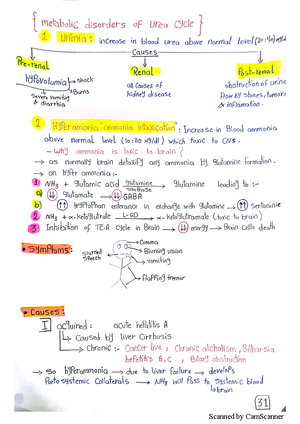 { metabolic disorders of Urea Cycle }
1 Uremia : increase in blood urea above normal level (20:40 mg/dl)
Causes
Pre-renal
Renal
Post-renal
hypovolumia → shock
→ Burns
all Causes of
kidney disease
obstruction of urine
flow by stones, tumors
& inflamation.
Severe vomiting
& diarrhia
2 Hyperamonia "ammonia intoxication" : Increase in Blood ammonia
above normal level which toxic to CNS.
- why ammonia is toxic to brain?
→ as normally brain detoxify any ammonia by glutamine formation.
→ on hyper ammonia :-
1 NH3 + glutamic acid glutamine glutamine leading to :-
a) ↓↓ glutamate → ↓↓ GABA
b) ↑↑ tryptophan enterance in exchange with glutamine → ↑↑ serotonine
2 NH3 + α-ketoglutrate → α-ketoglutramate (toxic to brain)
3 Inhibition of TCA cycle in Brain → ↓↓ energy → Brain cells death
• Symptoms :
Comma
slurred speech
Blurring vision
vomiting
Flapping tremor
• Causes :
I acquired : acute hepatitis A
↳ Caused by liver Cirrhosis
↳ Chronic :- Cancer live, Chronic alcoholism, Bilharsia
hepatitis B, C, Biliary obstruction
→ so hyperammonia → due to liver failure → develops
Porto systemic Collaterals → NH3 will Pass to systemic blood
↳ brain
31
Scanned by CamScanner